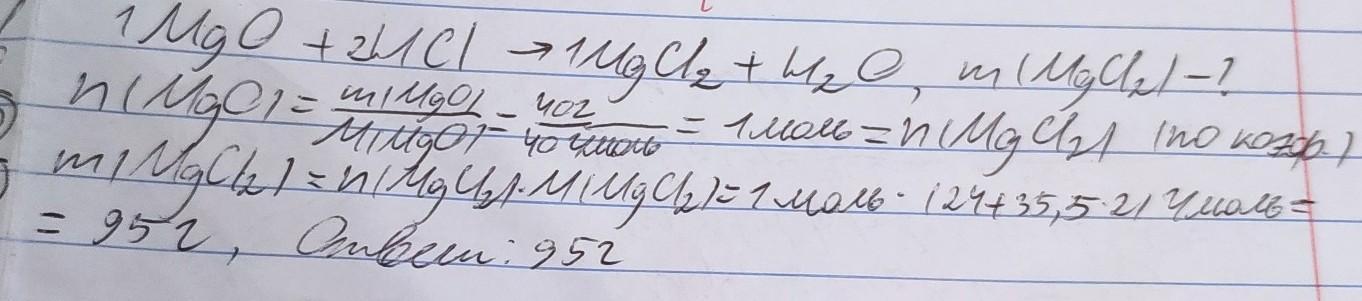 1MgO + 2HCl → 1MgCl₂ + H₂O, m(MgCl₂) - ?
n(MgO) = m(MgO)/M(MgO) = 40г/40 г/моль = 1 моль = n(MgCl₂) (по коэф.)
m(MgCl₂) = n(MgCl₂)·M(MgCl₂) = 1 моль · (24+35,5·2) г/моль =
= 95г, Ответ: 95г